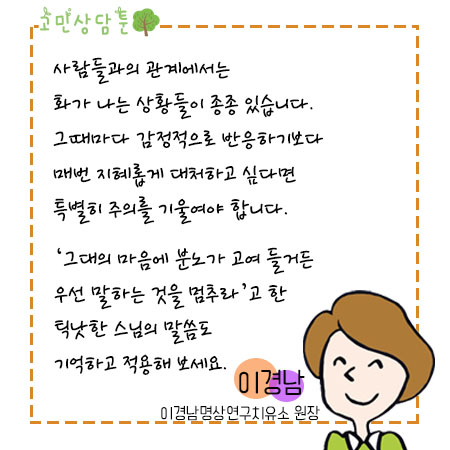 고민상담툰
사람들과의 관계에서는
화가 나는 상황들이 종종 있습니다.
그때마다 감정적으로 반응하기보다
매번 지혜롭게 대처하고 싶다면
특별히 주의를 기울여야 합니다.
‘그대의 마음에 분노가 고여 들거든
우선 말하는 것을 멈추라’고 한
틱낫한 스님의 말씀도
기억하고 적용해 보세요.
이경남
이경남명상연구치유소 원장